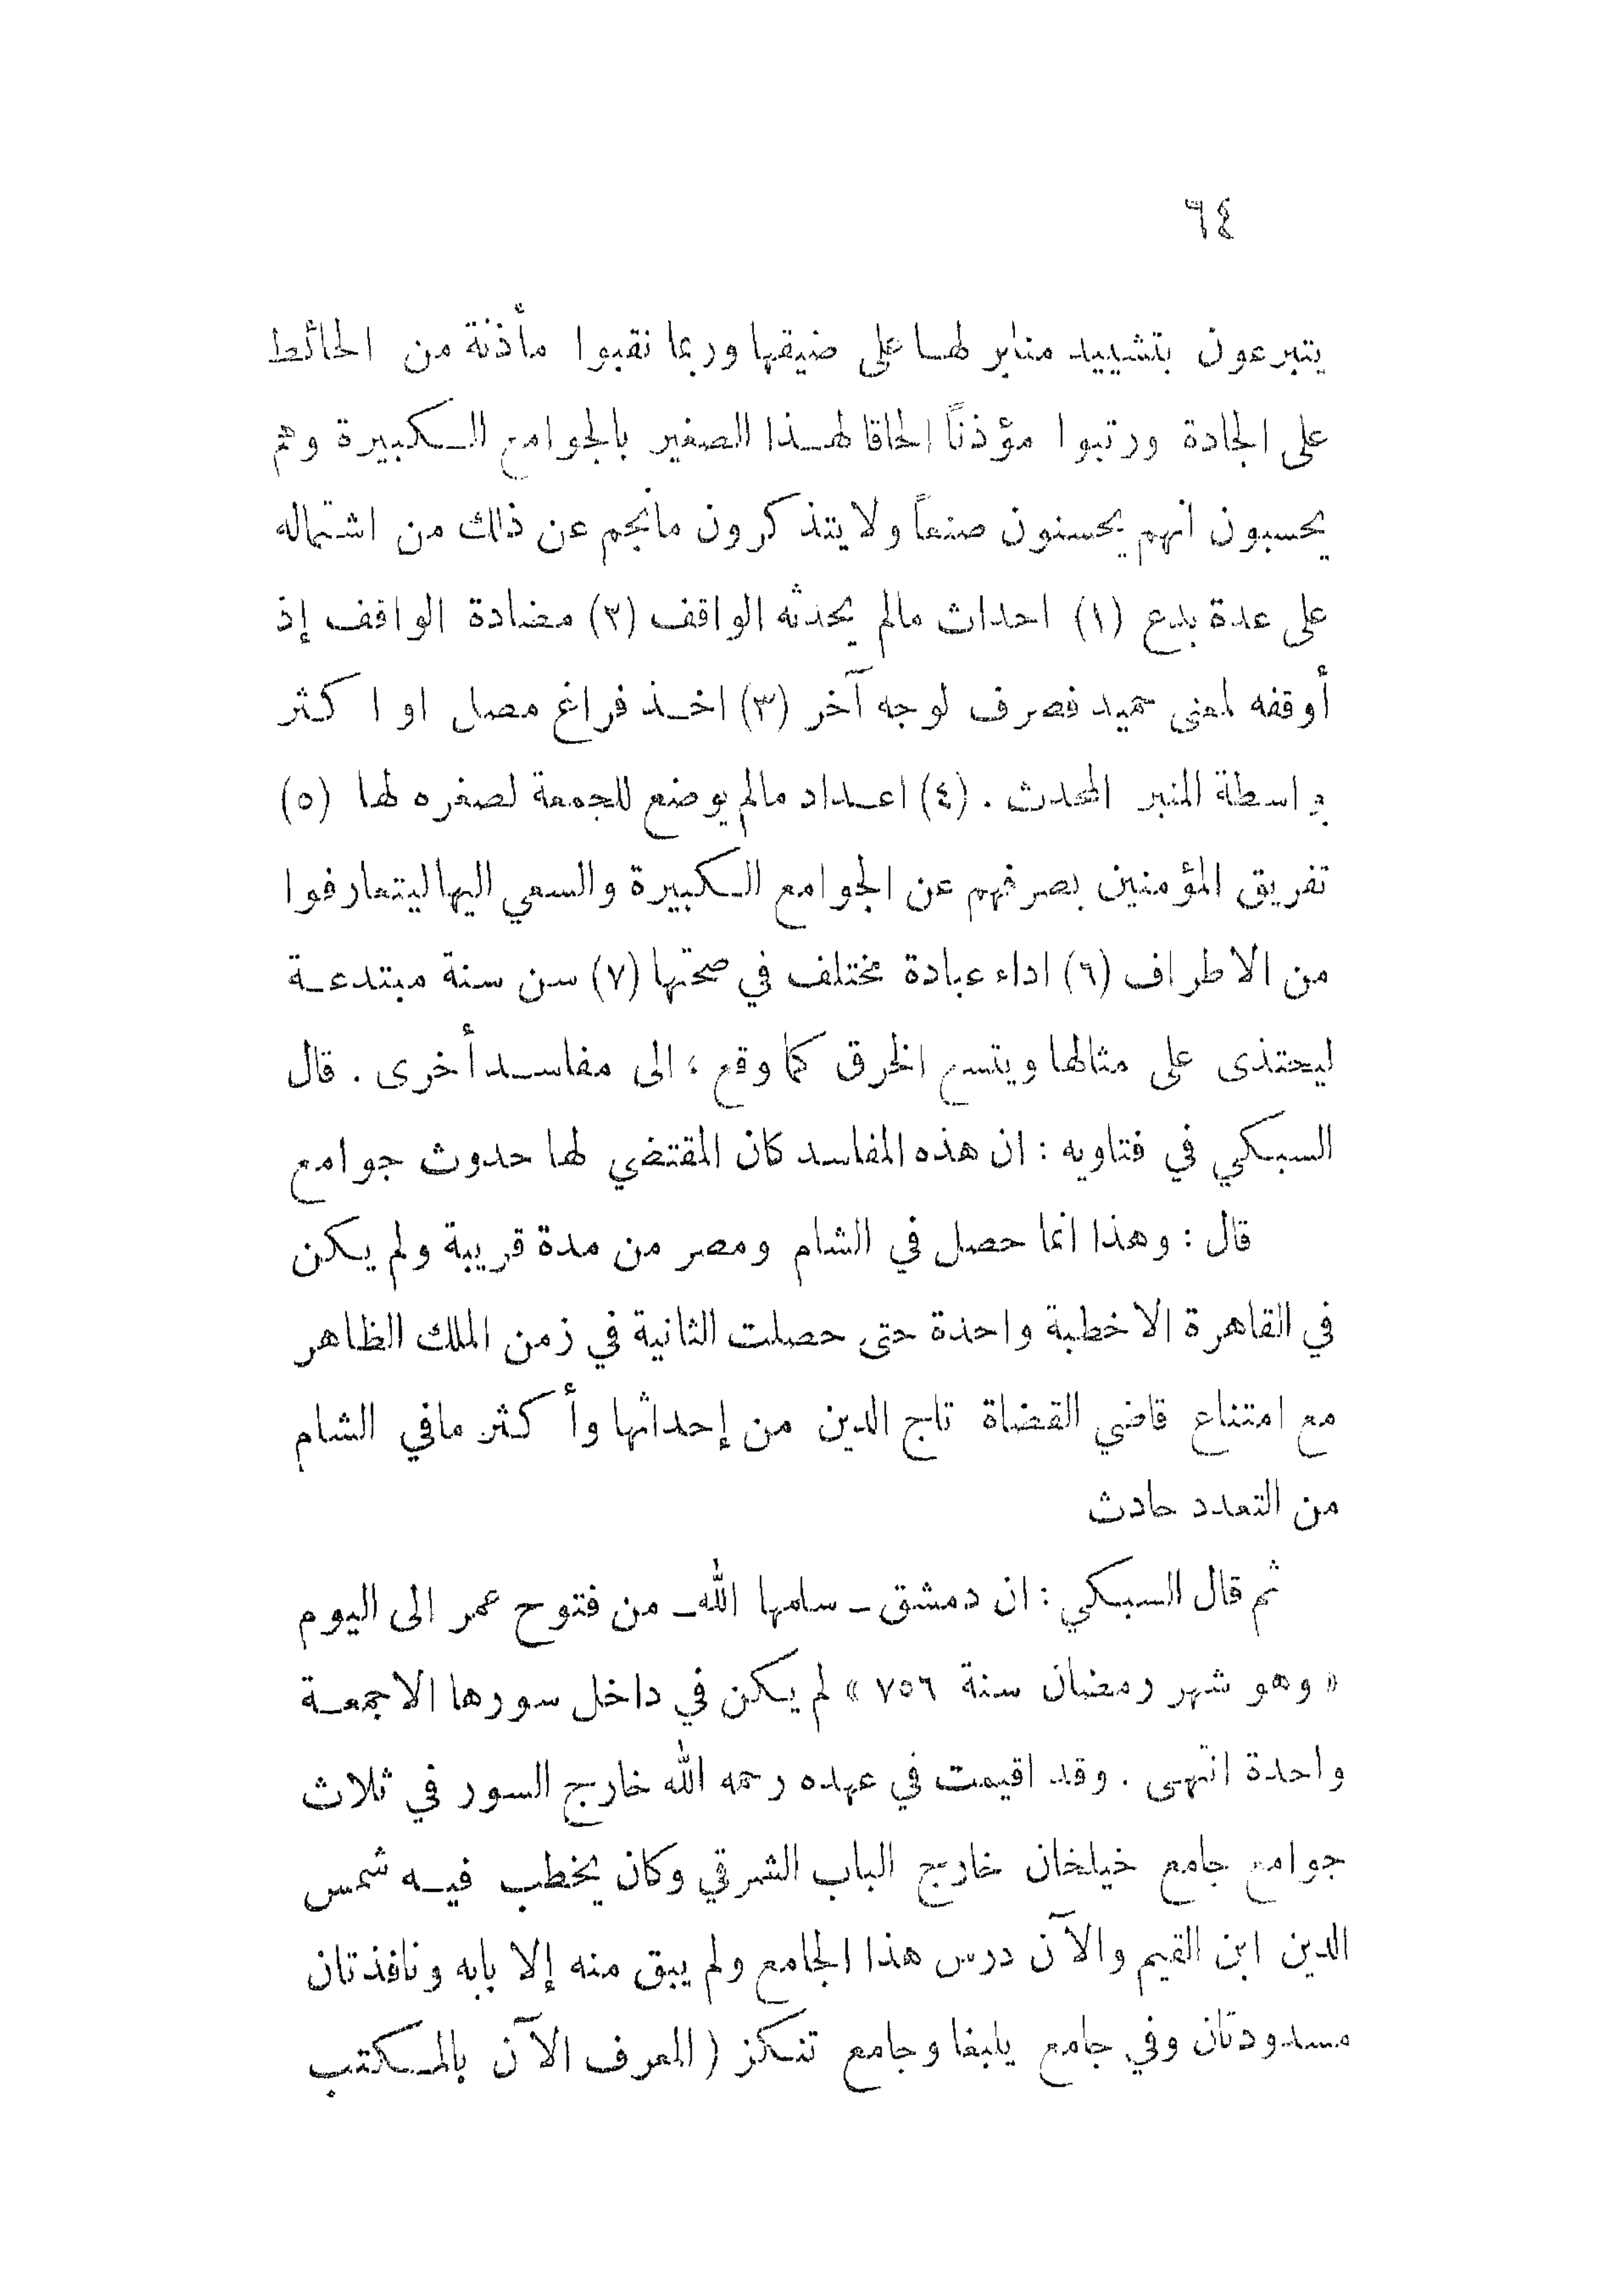 ٦٤
يتبرعون بتشييد منابر لها على ضيقها وربما نقبوا مأذنة من الحائط
على الجادة ورتبوا مؤذناً الحاقا لهذا الصغير بالجوامع الكبيرة وهم
يحسبون انهم يحسنون صنعاً ولا يتذكرون مانجم عن ذلك من اشتماله
على عدة بدع (١) احداث مالم يحدثه الواقف (٢) مضادة الواقف إذ
أوقفه لمعنى حميد فصرف لوجه آخر (٣) اخذ فراغ مصل او اكثر
بواسطة المنبر المحدث . (٤) اعداد مالم يوضع للجمعة لصغره لها (٥)
تفريق المؤمنين بصرفهم عن الجوامع الكبيرة والسعي اليها ليتعارفوا
من الاطراف (٦) اداء عبادة مختلف في صحتها (٧) سن سنة مبتدعة
ليحتذى على مثالها ويتسع الخرق كما وقع ؛ الى مفاسد أخرى . قال
السبكي في فتاويه : ان هذه المفاسد كان المقتضي لها حدوث جوامع
قال : وهذا انما حصل في الشام ومصر من مدة قريبة ولم يكن
في القاهرة الا خطبة واحدة حتى حصلت الثانية في زمن الملك الظاهر
مع امتناع قاضي القضاة تاج الدين من إحداثها وأكثر مافي الشام
من التعدد حادث
ثم قال السبكي : ان دمشق ـ سلمها الله ـ من فتوح عمر الى اليوم
« وهو شهر رمضان سنة ٧٥٦ » لم يكن في داخل سورها الا جمعة
واحدة انتهى . وقد اقيمت في عهده رحمه الله خارج السور في ثلاث
جوامع جامع خيلخان خارج الباب الشرقي وكان يخطب فيه شمس
الدين ابن القيم والآن درس هذا الجامع ولم يبق منه إلا بابه ونافذتان
مسدودتان وفي جامع يلبغا وجامع تنكز ( المعرف الآن بالمكتب